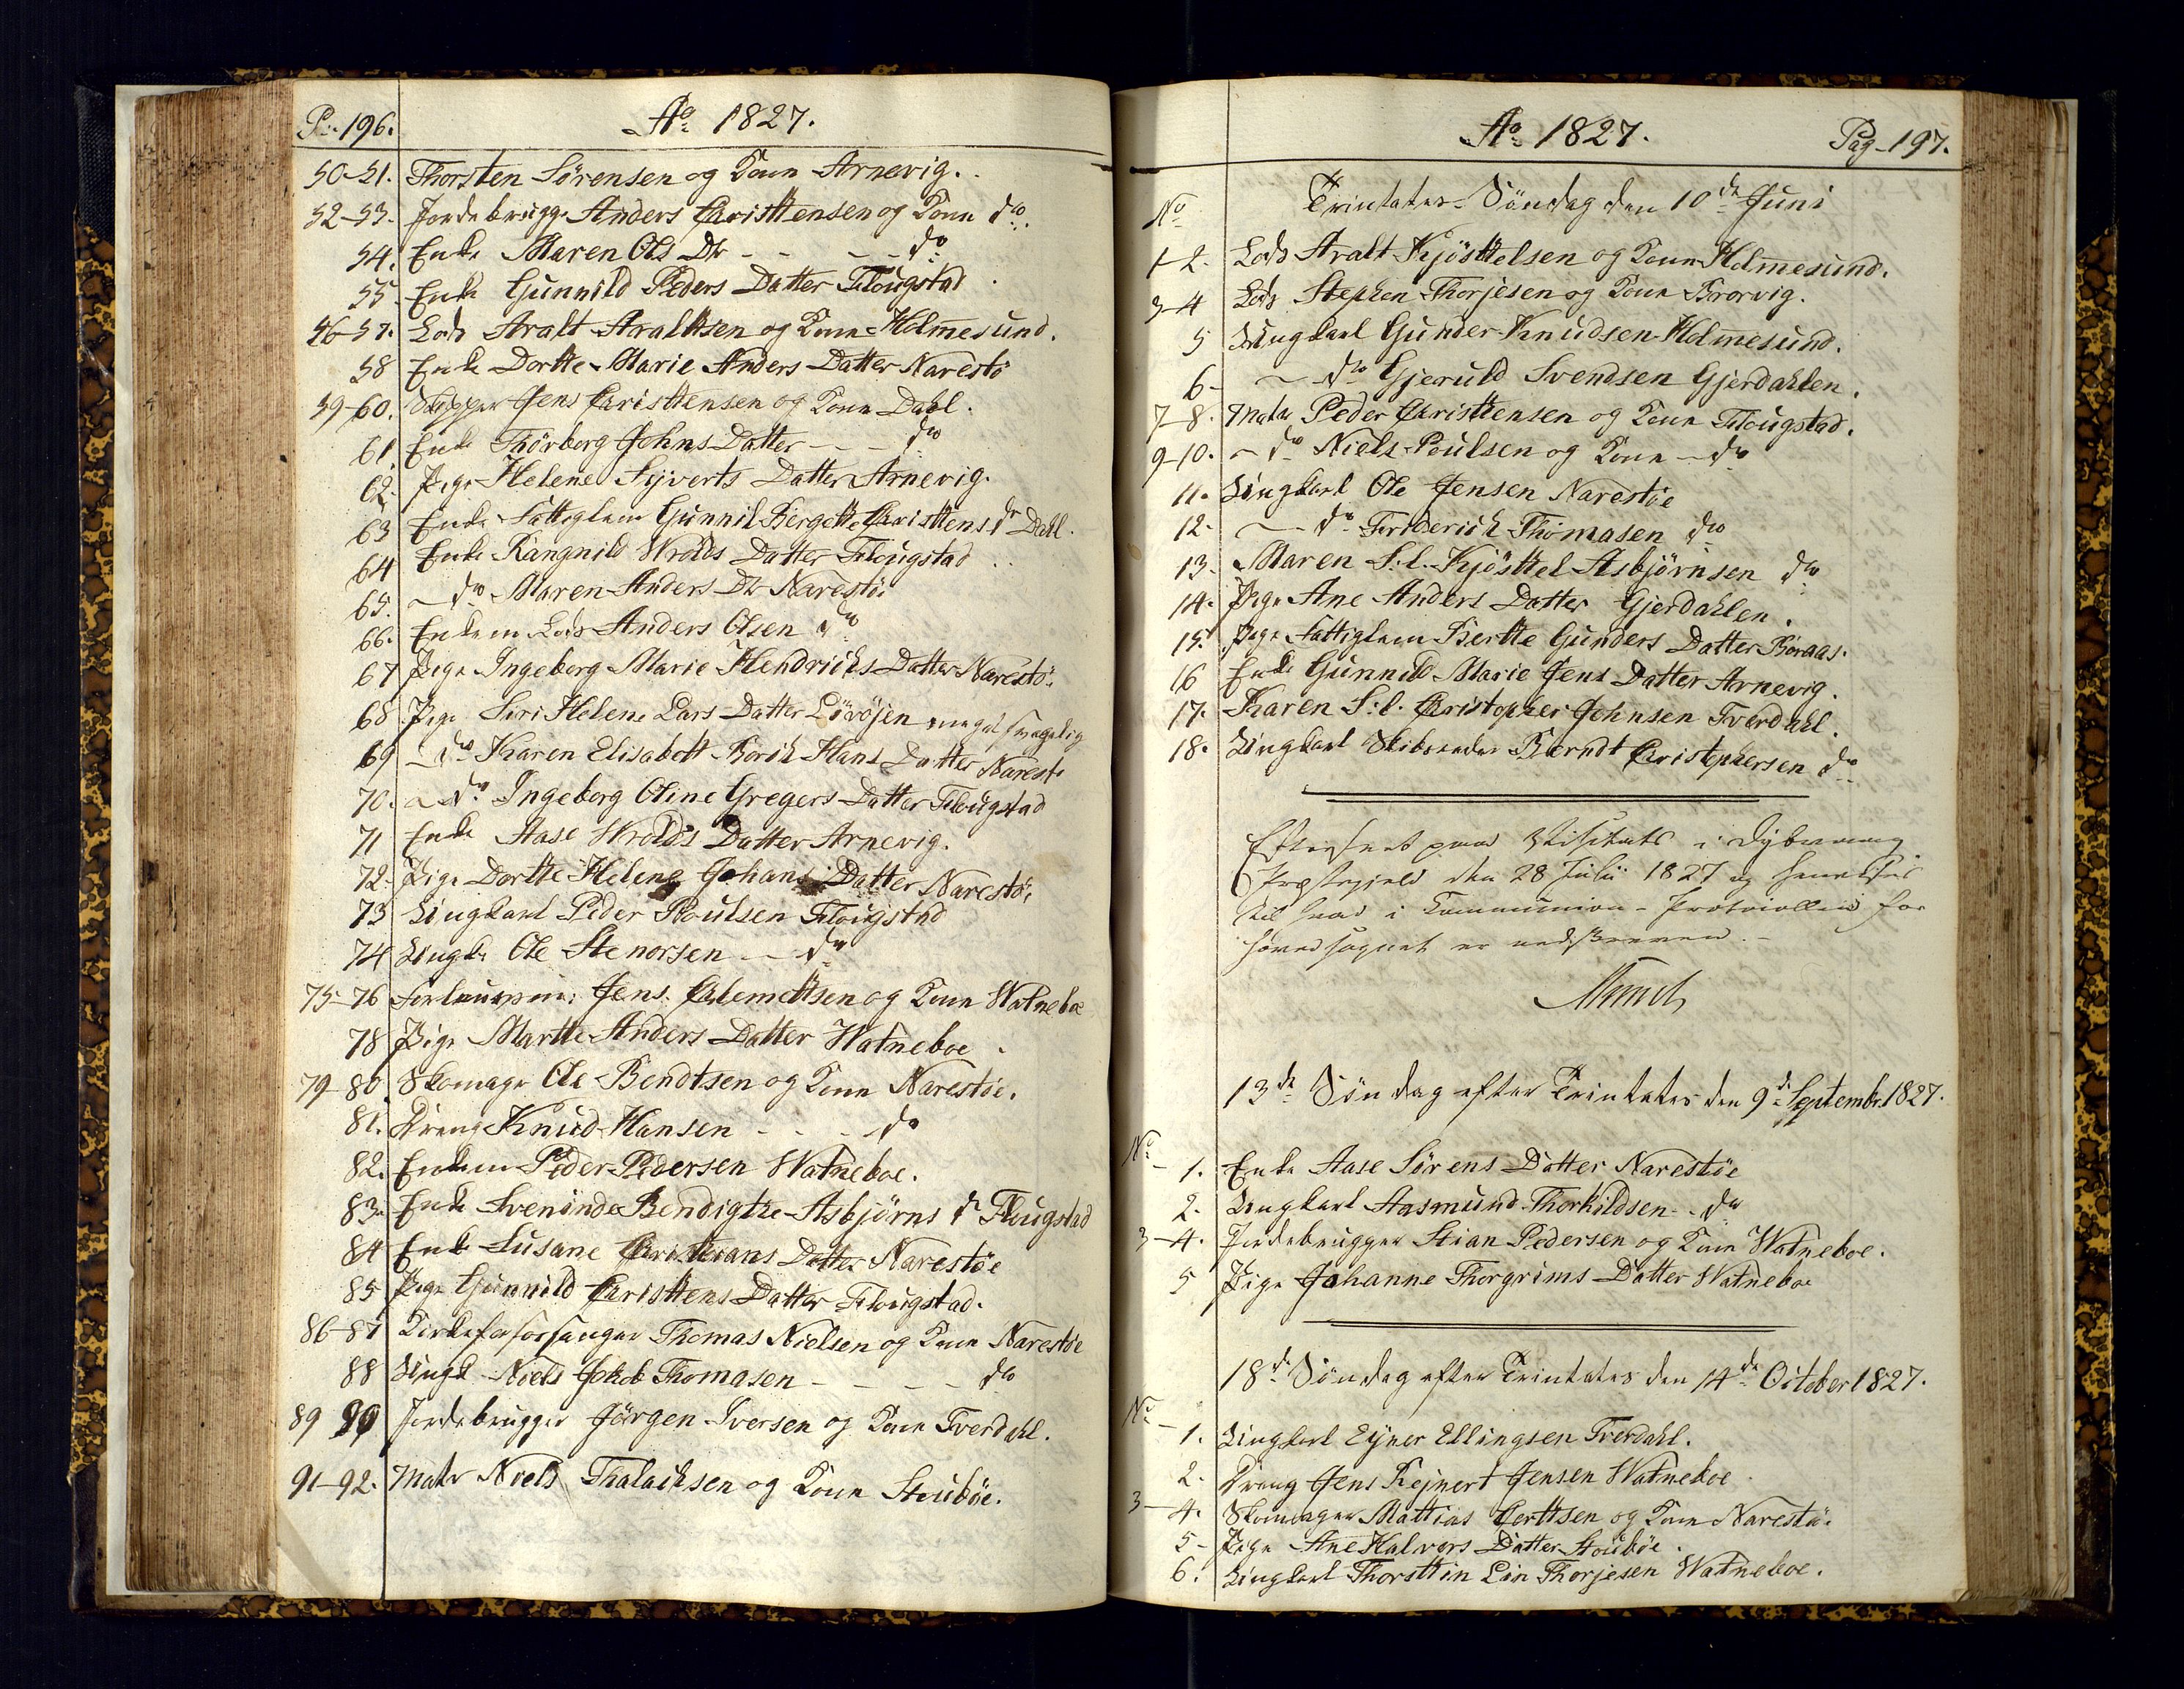 P. 196.
Aº 1827.
50-51. Thorsten Sörensen og Kone Arnevig.
52-53. Jordebrugge Anders Christtensen og Kone do.
54. Enke Maren Ols Dtr - - - - do
55. Enke Gunnild Peders Datter Flougstad
56-57. Lods Aralt Aralttsen og Kone Holmesund.
58 Enke Dortte Marie Anders Datter Narestö
59-60. Skipper Jens Christtensen og Kone Dahl.
61. Enke Thorborg Johns Datter - - do
62. Pige Helene Syverts Datter Arnevig.
63 Enke Fattiglem Gunnil Birgitte Christtens dr Dahl.
64 Enke Rangnild Wrolds Datter Flougstad
65. - do Maren Anders Dtr Narestöe
66. Enkem Lods Anders Olsen do
67 Pige Ingeborg Marie Hendrichs Datter Narestö.
68. Pige Siri Helene Lars Datter Lövöjen meget svagelig
69 - do Karen Elisabett Borit Hans Datter Narestö
70. - do Ingeborg Oline Gregers Datter Flougstad
71 Enke Aase Wrolds Datter Arnevig.
72. Pige Dortte Helene Johans Datter Narestö.
73 Ungkarl Peder Poulsen Flougstad
74 Ungk. Ole Stenorsen - - do
75-76 Jens Clemettsen og Kone Watneboe
78 Pige Martte Anders Datter Watneboe.
79-80. Skomager Ole Bendtsen og Kone Narestöe.
81. Dreng Knud Hansen - - - do
82. Enkem Peder Pedersen Watneboe.
83. Enke Sveninde Bendigtte Asbjörns dr Flougstad
84 Enke Susane Christtians Datter Narestöe
85 Pige Gunnild Christtens Datter Flougstad.
86-87 Kirkeforsanger Thomas Nielsen og Kone Narestöe
88 Ungk. Niels Jakob Thomasen - - - - do
89 90 Jordebrugger Jörgen Iversen og Kone Tverdahl.
91-92. Matr Niels Thalachsen og Kone Stouböe.
Aº 1827.
Pag. 197.
Trintates Söndag den 10de Juni
No
1-2. Lods Aralt Kjösttelsen og Kone Holmesund.
3-4 Lods Stephen Thorjesen og Kone Brorvig.
5 Ungkarl Gunder Knudsen Holmesund.
6- - do Gjeruld Svendsen Gjerdahlen.
7-8. Matr Peder Christtensen og Kone Flougstad.
9-10. - do Niels Poulsen og Kone - do
11. Ungkarl Ole Jensen Narestöe
12. - do Frederich Thomasen do
13. Maren S:l. Kjösttel Asbjörnsen do
14. Pige Ane Anders Datter Gjerdahlen.
15. Pige Fattiglem Bertte Gunders Datter Boraas.
16 Enke Gunnild Marie Jens Datter Arnevig.
17. Karen S:l. Christopher Johnsen Tverdahl.
18. Ungkarl Skibsreder Berndt Christophersen do
Efterseet paa Visitats i Dybvaag
Præstegjeld den 28 Julii 1827 og henviises
til hvad i Communion-Protocollen for
Hovedsognet er nedskreven. -
Munch
13de Söndag efter Trintates den 9de Septembr. 1827.
No
1. Enke Aase Sörens Datter Narestöe
2. Ungkarl Aasmund Thorkildsen - do
3-4. Jordebrugger Stian Pedersen og Kone Watneboe.
5 Pige Johanne Thorgrims Datter Watneboe
18de Söndag efter Trintates den 14de October 1827.
No
1. Ungkarl Ejner Ellingsen Tverdahl.
2. Dreng Jens Rejnert Jensen Watneboe
3-4. Skomager Mattias Gerttsen og Kone Narestö.
5- Pige Ane Halvors Datter Stouböe.
6. Ungkarl Thorsttin Lin Thorjesen Watneboe.